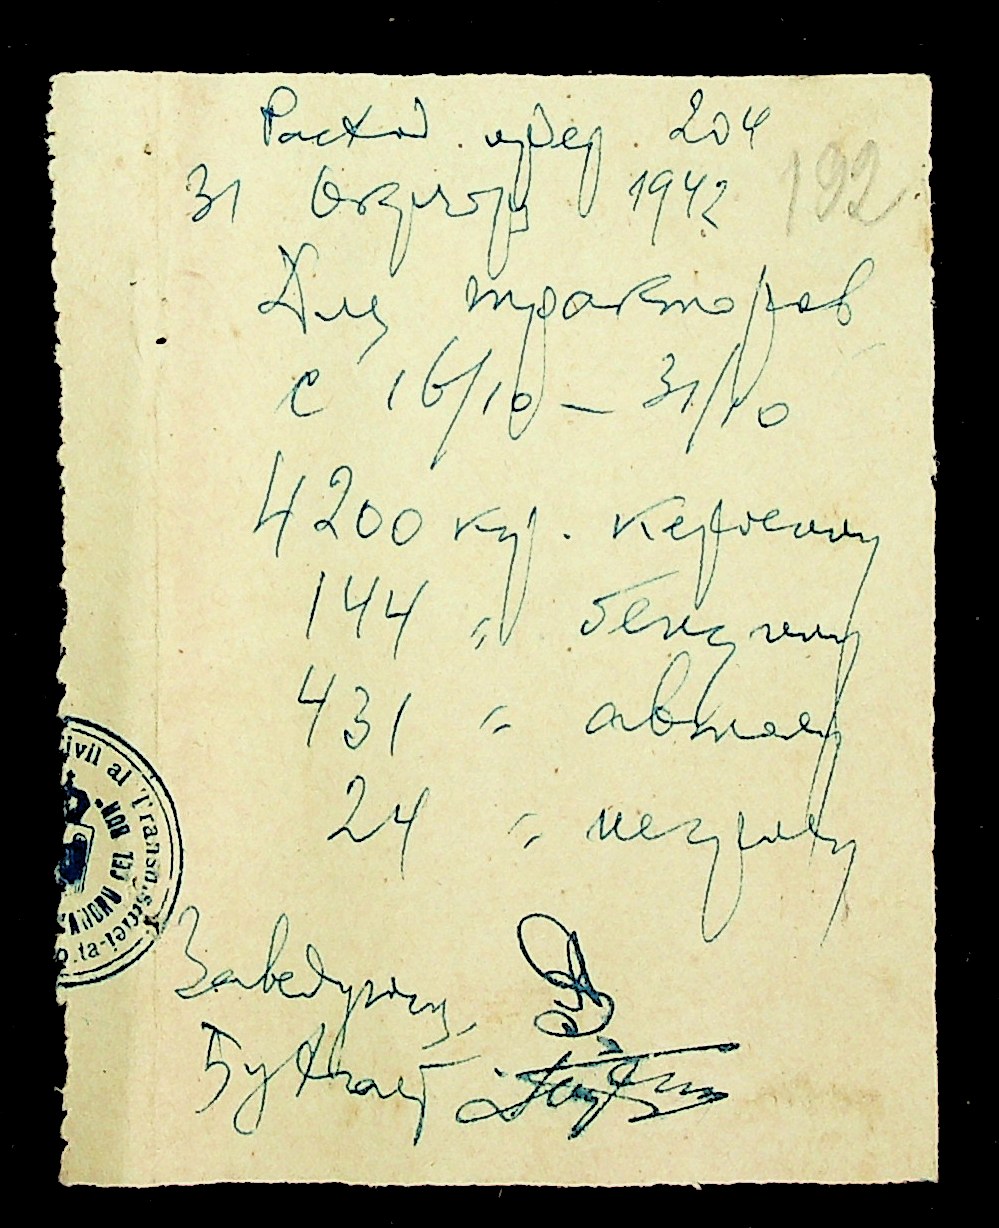 Расход. ордер 204
192
31 Октября 1942
Для тракторов
с 16/10 – 31/10
4200 кгр. керосину
144 " бензину
431 " автолу
24 " нигролу
ivil al Transn.
Заведующий
Бухгалт